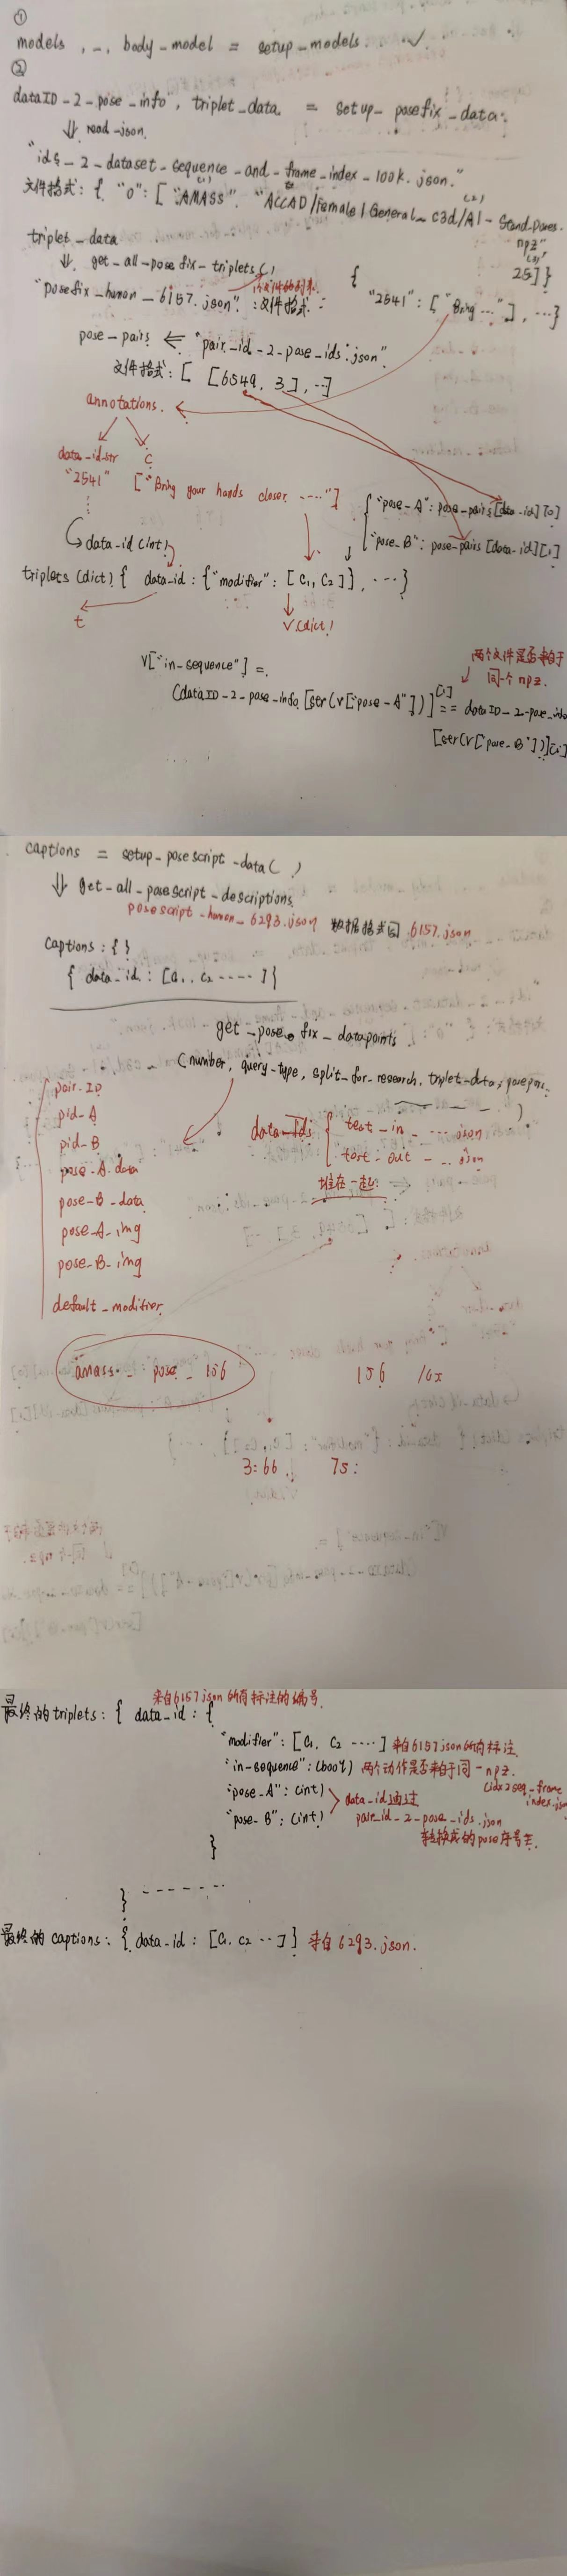 ①
models , _ , body_model = setup_models.
②
dataID_2_pose_info, triplet_data = setup_posefix_data.
⇓ read_json.
"ids_2_dataset_sequence_and_frame_index_100k.json."
文件格式: { "0": [ "AMASS". "ACCAD/Female1General_c3d/A1- Stand_poses.
npz"
25] }
triplet_data
⇓ get_all_posefix_triplets( )
"posefix_human_6157.json" : 文件格式: { "2541": ["Bring ..."] , ...}
pose_pairs ⇐ "pair_id_2_pose_ids.json"
文件格式: [ [6549, 3], ...]
annotations.
data_id_str c
"2541" ["Bring your hands closer ....."]
{ "pose_A": pose_pairs[data_id][0]
"pose_B": pose_pairs[data_id][1]
data_id (int)
triplets (dict) { data_id : {"modifier": [C1, C2]}, ...}
t v (dict)
两个文件是否来自于
同一个npz.
V["in-sequence"] =
(dataID_2_pose_info[str(v["pose_A"])][1] == dataID_2_pose_info
[str(v["pose_B"])][1]
captions = setup_posescript_data( )
⇓ get_all_posescript_descriptions.
posescript_human_6293.json 数据格式同 6157.json
captions : { }
{ data_id : [C1, C2 ..... ]}
get_pose_fix_datapoints
(number, query_type, split_for_research, triplet_data,
pair_ID
pid_A
pid_B
pose_A_data
pose_B_data
pose_A_img
pose_B_img
default_modifier.
data_Ids { test_in_ ... json
test_out_ ... json
堆在一起
amass_ pose_ 156
156
3:66 75:
最终的triplets: { data_id : {
来自6157 json 所有标注的编号.
"modifier": [C1, C2 ....] 来自6157json所有标注
"in-sequence": (bool) 两个动作是否来自于同一npz.
"pose_A": (int)
"pose_B": (int)
data_id通过
pair_id_2_pose_ids.json
转换成的pose序号
}
} - - - - - -
最终的 captions: { data_id : [C1, C2 ..] } 来自 6293.json.